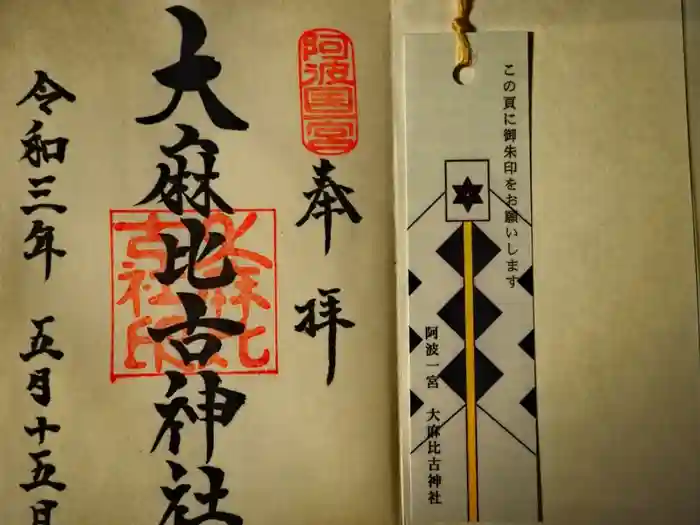 この頁に御朱印をお願いします
阿波一宮 大麻比古神社
阿波国一宮
奉拝
大麻比古神社
大麻比古社印
令和三年 五月十五日